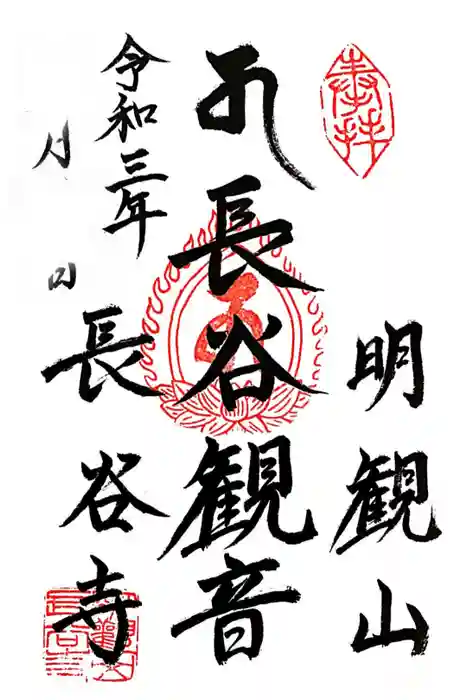 奉拝
明観山
長谷観音
令和三年
月 日
長谷寺